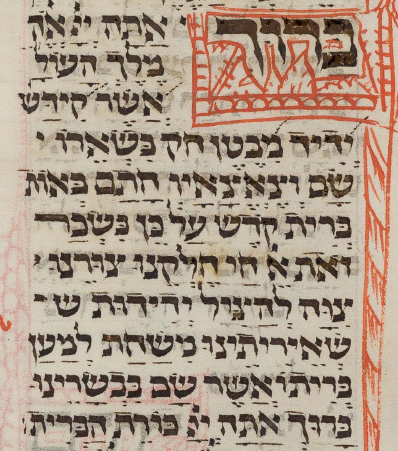 ברוך אתה יי
מלך העול
אשר קידש
ידיד מבטן חק בשארו
שם וצאצאיו חתם באות
ברית קדש על כן בשכר
זאת אל חי חלקנו צורנו
צוה להציל ידידות ש
שאירותינו משחת למען
בריתו אשר שם בבשרינו
ברוך אתה יי כורת הברית